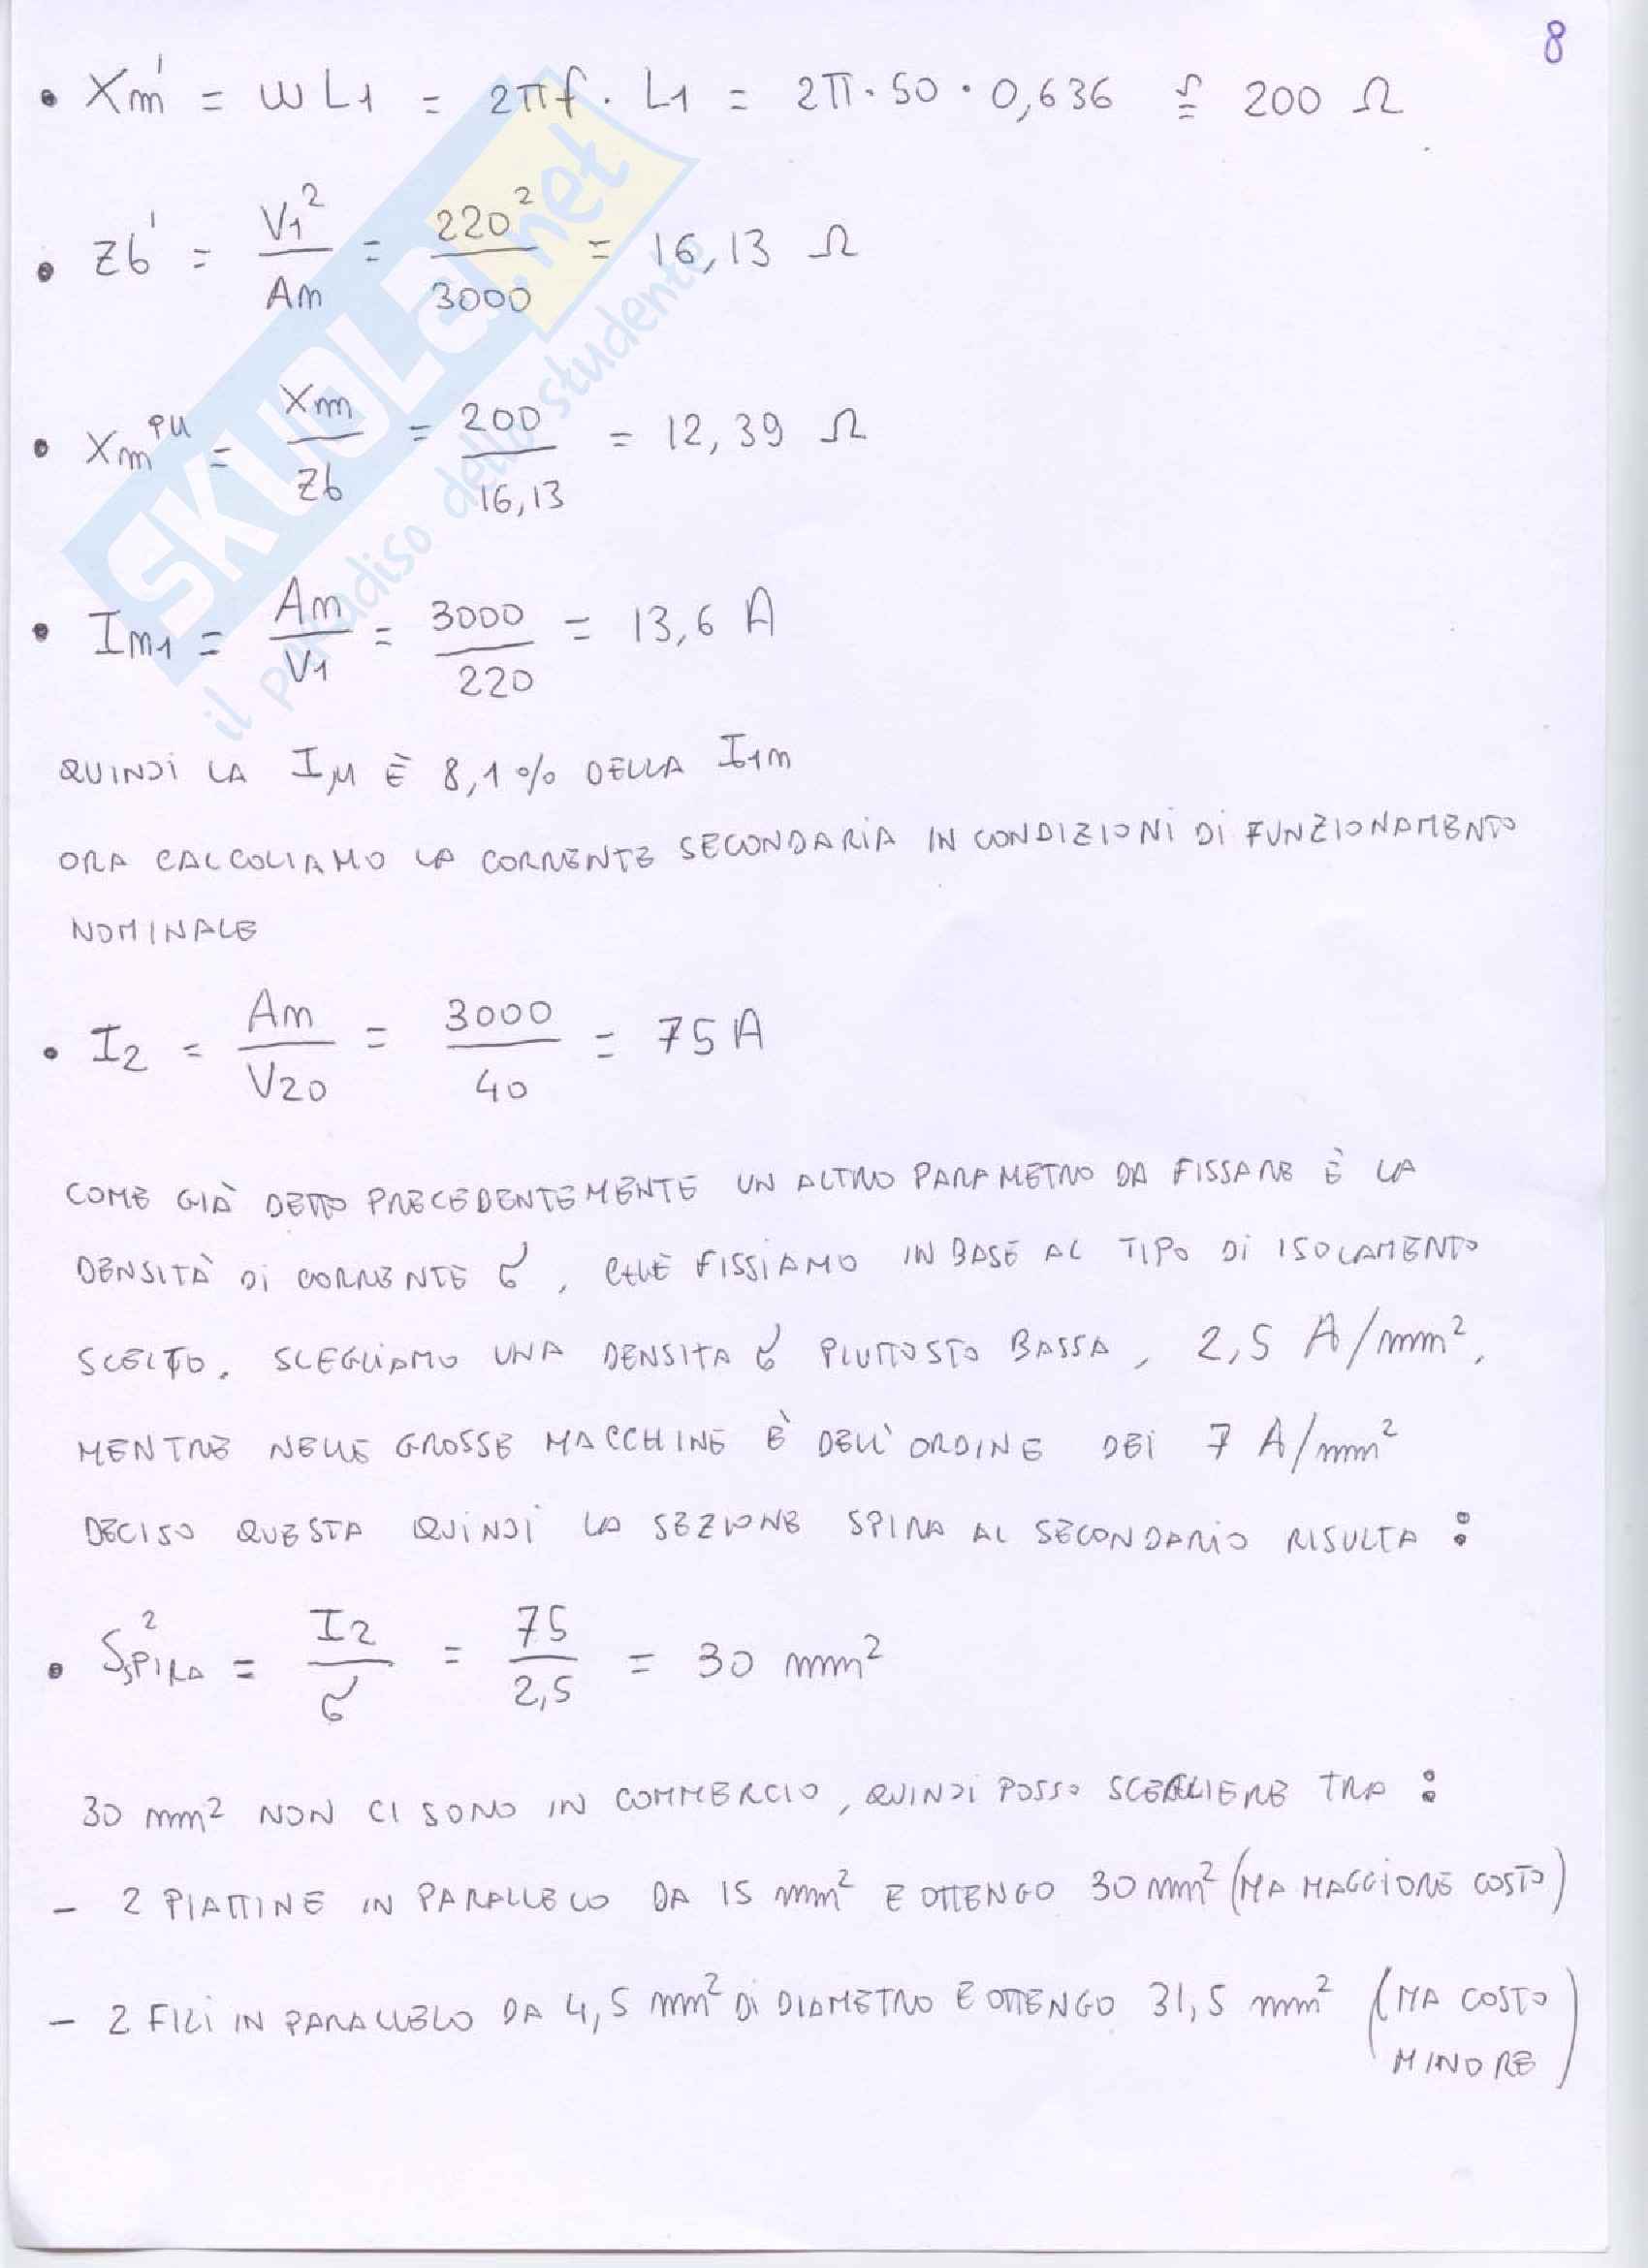 8
• Xm' = ωL1 = 2πf · L1 = 2π·50·0,636 ≅ 200 Ω
• Zb' = V1² / Am = 220² / 3000 = 16,13 Ω
• Xm^PU = Xm / Zb = 200 / 16,13 = 12,39 Ω
• Im1 = Am / V1 = 3000 / 220 = 13,6 A
QUINDI LA Iμ È 8,1% DELLA I1m
ORA CALCOLIAMO LA CORRENTE SECONDARIA IN CONDIZIONI DI FUNZIONAMENTO
NOMINALE
• I2 = Am / V20 = 3000 / 40 = 75 A
COME GIÀ DETTO PRECEDENTEMENTE UN ALTRO PARAMETRO DA FISSARE È LA
DENSITÀ DI CORRENTE σ, CHE FISSIAMO IN BASE AL TIPO DI ISOLAMENTO
SCELTO. SCEGLIAMO UNA DENSITA σ PIUTTOSTO BASSA, 2,5 A/mm²,
MENTRE NELLE GROSSE MACCHINE È DELL'ORDINE DEI 7 A/mm²
DECISO QUESTA QUINDI LA SEZIONE SPIRA AL SECONDARIO RISULTA :
• S²SPIRA = I2 / σ = 75 / 2,5 = 30 mm²
30 mm² NON CI SONO IN COMMERCIO, QUINDI POSSO SCEGLIERE TRA :
- 2 PIATTINE IN PARALLELO DA 15 mm² E OTTENGO 30 mm² (MA MAGGIORE COSTO)
- 2 FILI IN PARALLELO DA 4,5 mm² DI DIAMETRO E OTTENGO 31,5 mm² (MA COSTO
MINORE)
SKUOLA.net
il paradiso dello studente